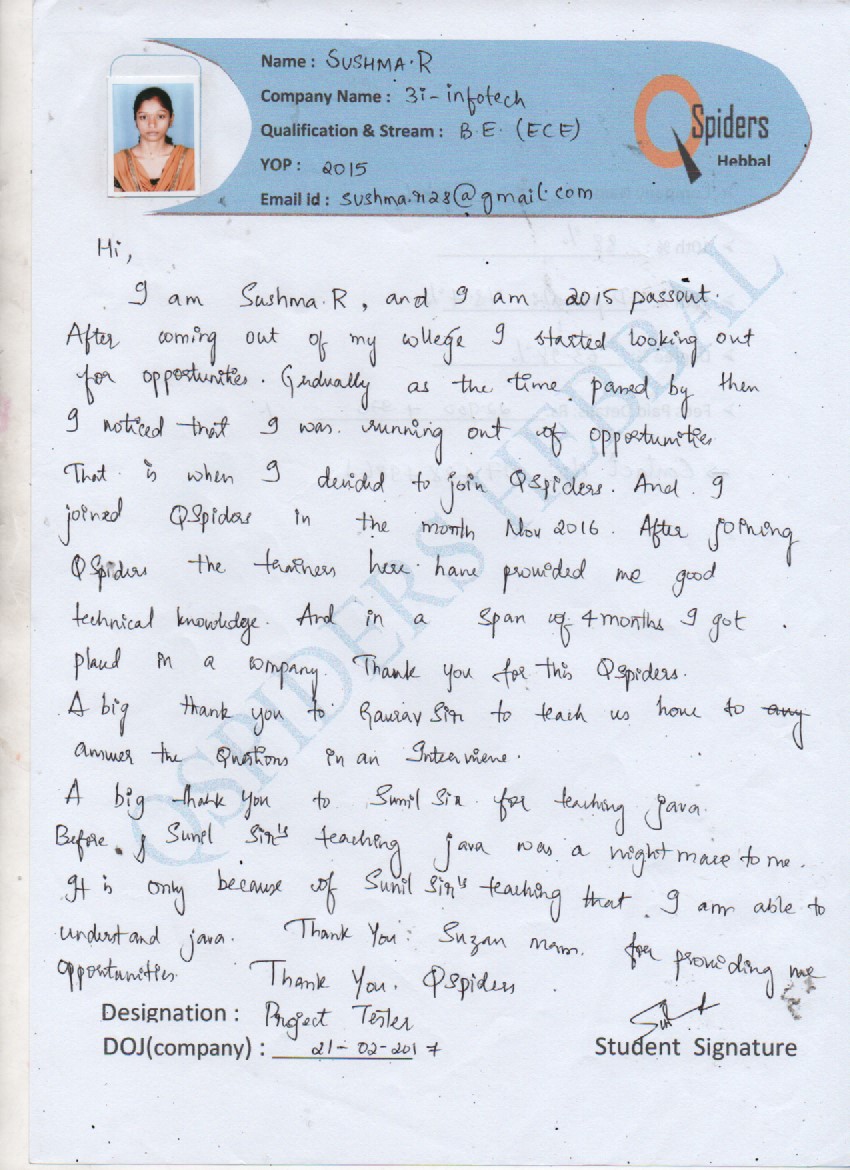 Name : SUSHMA.R
Company Name : 3i-infotech
Qualification & Stream : B.E. (ECE)
YOP : 2015
Email id : sushma.r128@gmail.com
QSpiders
Hebbal
Hi,
I am Sushma.R, and I am 2015 passout.
After coming out of my college I started looking out
for opportunities. Gradually as the time passed by then
I noticed that I was running out of opportunities
That is when I decided to join QSpiders. And I
joined QSpiders in the month Nov 2016. After joining
QSpiders the trainers here have provided me good
technical knowledge. And in a span of 4 months I got
placed in a company. Thank you for this QSpiders.
A big thank you to Gaurav Sir to teach us how to any
answer the Questions in an Interview.
A big thank you to Sunil Sir for teaching java.
Before Sunil Sir's teaching java was a nightmare to me.
It is only because of Sunil Sir's teaching that I am able to
understand java. Thank You Suzan mam. for providing me
opportunities. Thank You. QSpiders
Designation : Project Tester
DOJ(company) : 21-02-2017
Student Signature
QSPIDERS HEBBAL